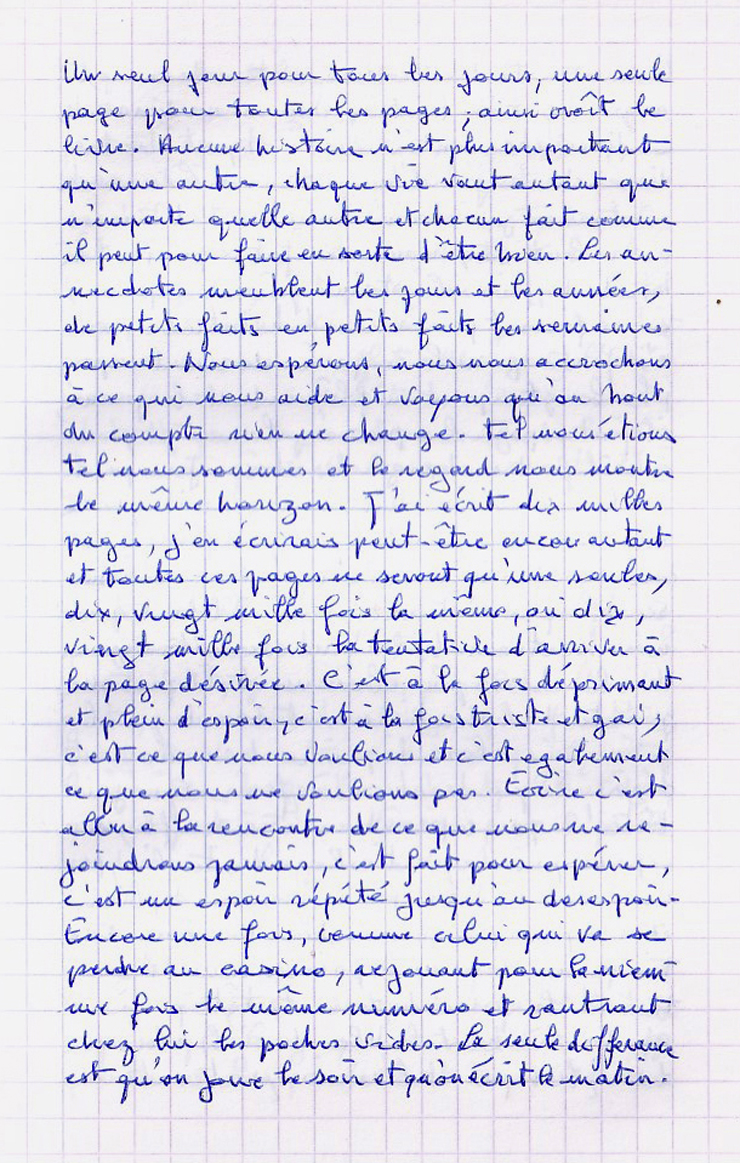 Un seul jour pour tous les jours, une seule
page pour toutes les pages ; ainsi croît le
livre. Aucune histoire n'est plus important
qu'une autre, chaque vie vaut autant que
n'importe quelle autre et chacun fait comme
il peut pour faire en sorte d'être bien. Les an-
necdotes meublent les jours et les années,
de petits faits en petits faits les semaines
passent. Nous espérons, nous nous accrochons
à ce qui nous aide et voyons qu'au bout
du compte rien ne change. Tel nous étions
tel nous sommes et le regard nous montre
le même horizon. J'ai écrit dix milles
pages, j'en écrirais peut-être encore autant
et toutes ces pages ne seront qu'une seules,
dix, vingt mille fois la même, oui dix,
vingt mille fois la tentative d'arriver à
la page désirée. C'est à la fois déprimant
et plein d'espoir, c'est à la fois triste et gai,
c'est ce que nous voulions et c'est egalement
ce que nous ne voulions pas. Écrire c'est
aller à la rencontre de ce que nous ne re-
joindrons jamais, c'est fait pour espérer,
c'est un espoir répété jusqu'au desespoir.
Encore une fois, comme celui qui va se
perdre au casino, rejouant pour la niem
me fois le même numéro et rentrant
chez lui les poches vides. La seule differance
est qu'on joue le soir et qu'on écrit le matin.